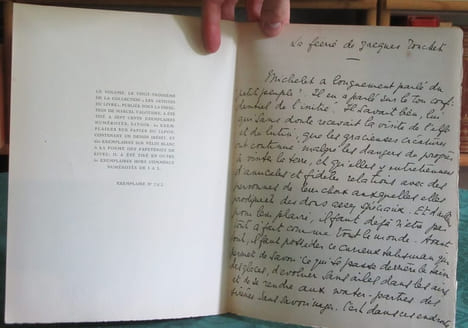 CE VOLUME, LE VINGT-TROISIÈME
DE LA COLLECTION « LES ARTISTES
DU LIVRE », PUBLIÉE SOUS LA DIREC-
TION DE MARCEL VALOTAIRE, A ÉTÉ
TIRÉ A SEPT CENTS EXEMPLAIRES
NUMÉROTÉS, SAVOIR : EXEM-
PLAIRES SUR PAPIER DU JAPON,
CONTENANT UN DESSIN INÉDIT, ET
EXEMPLAIRES SUR VÉLIN BLANC
A LA FORME DES PAPETERIES DE
RIVES; IL A ÉTÉ TIRÉ EN OUTRE
EXEMPLAIRES HORS COMMERCE
NUMÉROTÉS DE I A
EXEMPLAIRE N°
La féerie de Jacques Touchet
Michelet a longuement parlé du
petit peuple. Il en a parlé sur le ton confi-
dentiel de l'initié. Il savait bien, lui
qui sans doute recevait la visite de l'elfe
et du lutin, que les gracieuses créatures
ont continué malgré les dangers du progrès
à hanter la terre, et qu'elles y entretiennent
d'amicales et fidèles relations avec des
personnes de leur choix auxquelles elles
prodiguent des dons assez spéciaux. Et d'abord
pour leur plaire, il faut déjà n'être pas
tout à fait comme tout le monde. Avant
tout, il faut posséder ce curieux talisman qui
permet de savoir ce qui se passe derrière le tain
des glaces, d'évoluer sans ailes dans les airs
et de se rendre aux water-parties des
sirènes sans savoir nager. C'est dans ces endroits